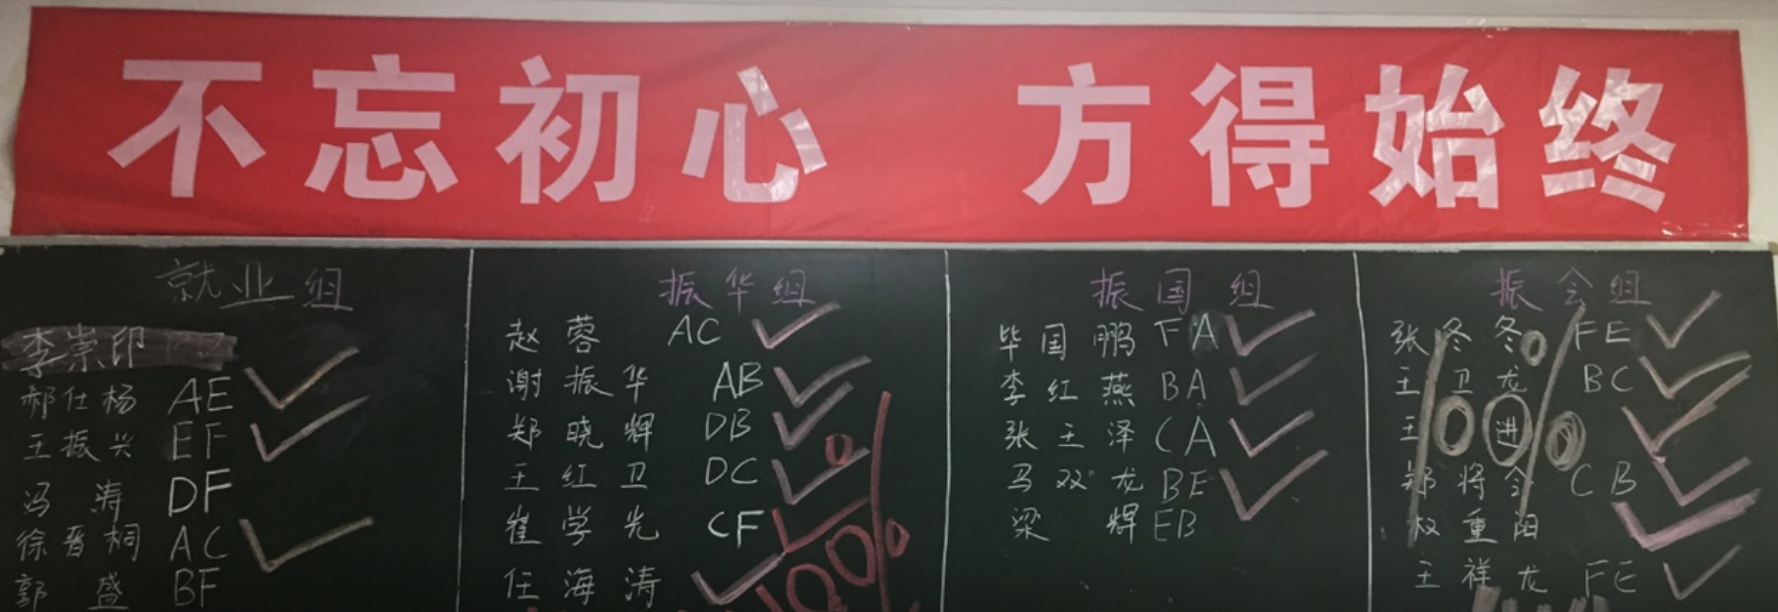 不忘初心 方得始终
就业组
李崇印
郝仕杨 AE
王振兴 EF
冯涛 DF
徐晋桐 AC
郭盛 BF
振华组
赵蓉 AC
谢振华 AB
郑晓辉 DB
王红卫 DC
崔学光 CF
任海涛
100%
振国组
毕国鹏 FA
李红燕 BA
张王泽 CA
马双龙 BE
梁辉 EB
振会组
张冬冬 FE
王卫龙 BC
王进
郑将令 CB
权重阳
王祥龙 FE
100%